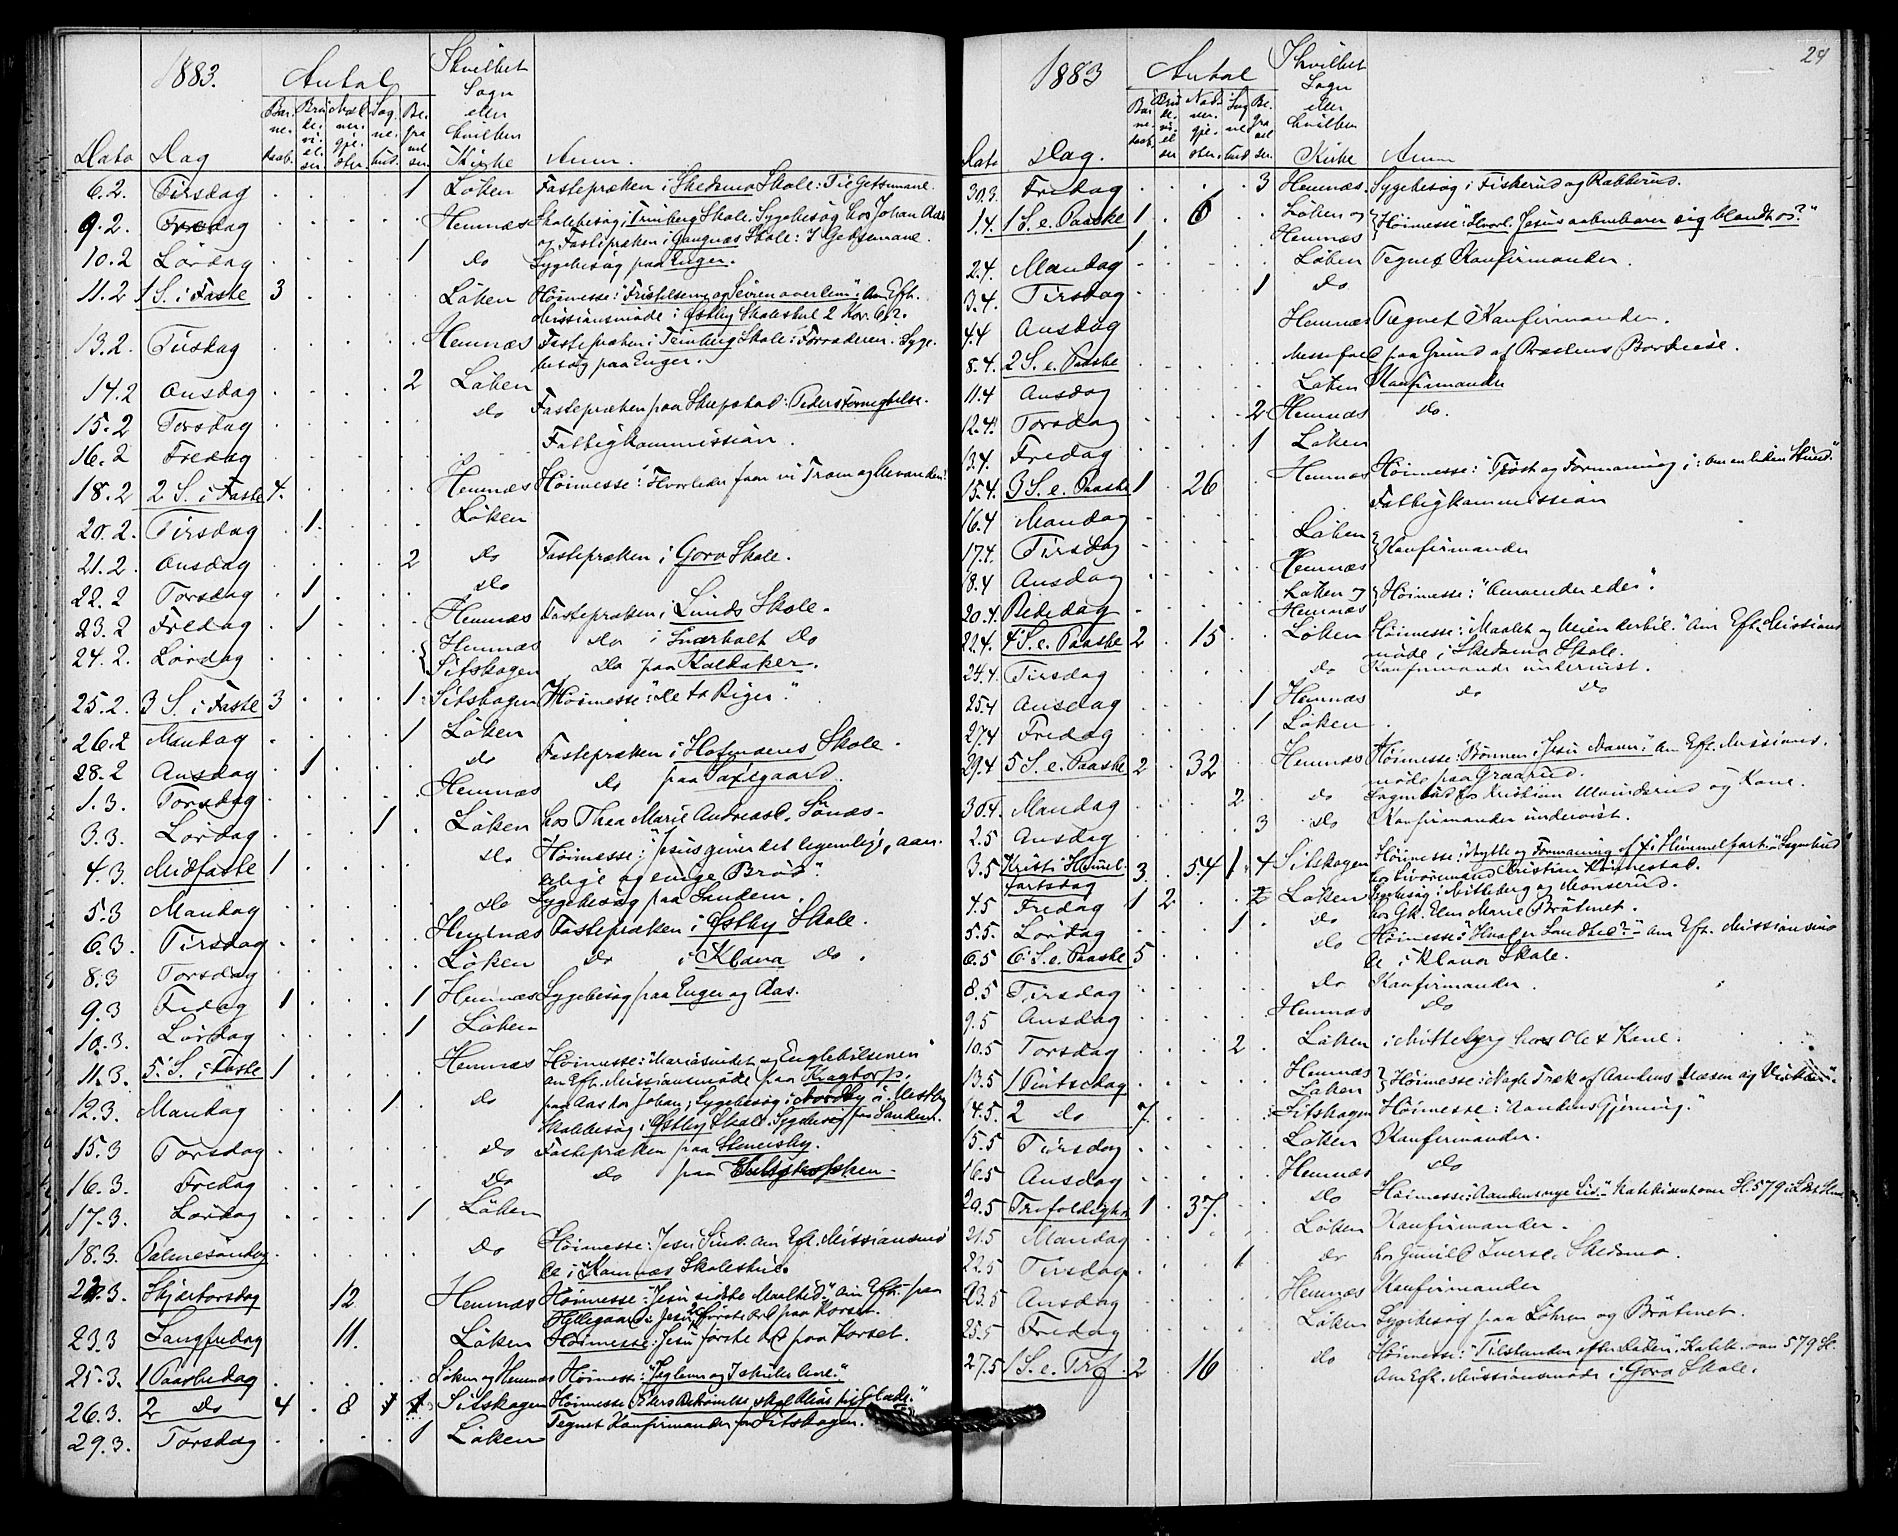 1883. Antal Hvilket Sogn eller hvilken Kirke
Dato Dag Barnedaab. Brudevielser. Nadvergjester. Sognebud. Begravelser. Anm.
6.2. Tirsdag . . . . 1 Løken Fastepræken i Skedsmo Skole: Til Getsemane.
9.2. Fredag . . . . . Hemnæs Skolebesøg i Trinberg Skole. Sygebesøg hos Johan Aas
og Fastepræken i Gangnæs Skole: I Getsemane.
10.2 Lørdag . . . . 1 do Sygebesøg paa Enger.
11.2 1 S. i Faste 3 . . . . Løken Høimesse: "Fristelserne og Seiren over dem". Om Eft.
Missionsmøde i Østby Skolestue 2 Kor. 6,2.
13.2. Tirsdag . . . . . Hemnæs Fastepræken i Trinberg Skole: Forræderen. Syge-
besøg paa Enger.
14.2 Onsdag . . . . 2 Løken
15.2 Torsdag . . . . . do Fastepræken paa Skrepstad: Peders Fornegtelse.
16.2 Fredag . . . . . Fattigkommission.
18.2 2 S. i Faste 4. . . . . Hemnæs Høimesse: "Hvorledes faar vi Troen
20.2. Tirsdag . 1. . . . Løken
21.2. Onsdag . . . . 2 do Fastepræken i Goro Skole.
22.2 Torsdag . 1 . . . do
23.2 Fredag . 1 . . . Hemnæs Fastepræken i Lunds Skole.
24.2. Lørdag . . . . . Hemnæs do i Snarholt do
Sitskogen do paa Kolbaker.
25.2. 3 S. i Faste 3 . . . 1. Sitskogen Høimesse: "De to Riger."
26.2 Mandag . . . . 1 Løken
28.2 Onsdag . 1 . . . do Fastepræken i Hofmoens Skole.
1.3. Torsdag . . . . . Hemnæs do paa Saxegaard.
3.3. Lørdag . . . 1 . Løken hos Thea Marie Andreasd. Sønæs.
4.3. Midfaste 1 . . . . do Høimesse: "Jesus giver det legemlige, aan-
delige og evige Brød."
5.3 Mandag . . . . . do Sygebesøg paa Sandem.
6.3. Tirsdag . . . . . Hemnæs Fastepræken i Østby Skole.
8.3 Torsdag . . . . . Løken do i Klova do.
9.3 Fredag 1 . . . 1 Hemnæs Sygebesøg paa Enger og Aas.
10.3. Lørdag . . . . 1 Løken
11.3. 5. S. i Faste 1 . . . . Hemnæs Høimesse: "Mariæsindet og Englehilsenen"
om Eft. Missionsmøde paa Kragtorp,
12.3. Mandag . . . 1 . do paa Aas hos Johan, Sygebesøg i Nordby i Mostby
Skolebesøg i Østby Skole. Sygebesøg paa Sandem.
15.3 Torsdag . . . . . do Fastepræken paa
16.3. Fredag . . . . . do do paa
17.3. Lørdag . . . . 1 Løken
18.3. Palmesøndag . . . . . do Høimesse: Jesu Sind. Om Eft. Missionsmø-
de i Komnæs Skolestue.
22.3. Skjærtorsdag 12 Hemnæs Høimesse: "Jesu sidste Maaltid." Om Eft. paa
Hellegaard: Jesu første Ord paa Korset.
23.3 Langfredag 11. Løken Høimesse: Jesu første Ord paa Korset.
25.3. 1 Paaskedag . . . . . Løken og Hemnæs Høimesse:
26.3. 2 do 4 . 8 1 1 Sitskogen Høimesse: skal blive til Glæde."
29.3. Torsdag . . . . 1 Løken Tegnet Konfirmander fra Sitskogen.
24
1883 Antal Hvilket Sogn eller hvilken Kirke
Dato Dag. Barnedaab. Brudevielser Nadvergjester. Sognebud Begravelser. Anm
30.3. Fredag . . . . 3 Hemnæs. Sygebesøg i Fiskerud og Rakkerud.
1.4. 1 S. e. Paaske 1 . 6 . . Løken og Hemnæs Høimesse: "Hvorl. Jesus aabenbarer sig blandt os?"
2.4. Mandag . . . . . Løben Tegnet Konfirmander.
3.4. Tirsdag . . . . 1 do
4.4 Onsdag . . . . . Hemnæs Tegnet Konfirmander.
8.4. 2 S. e. Paaske . . . . . Messefald paa Grund af Præstens Bortreise.
11.4 Onsdag . . . . . Løken Konfirmander
12.4. Torsdag . . . . 2 Hemnæs do.
13.4. Fredag . . . . 1 Løken
15.4. 3 S. e. Paaske 1 . 26 . . Hemnæs Høimesse: "Trøst og Formaning i: om en liden Stund."
16.4 Mandag . . . . . Fattigkommission
17.4. Tirsdag . . . . . Løken Konfirmander
18.4 Onsdag . . . . . Hemnæs
20.4. Bededag . . . . . Løken og Hemnæs Høimesse: "Omvender eder".
22.4. 4 S. e. Paaske 2 . 15 . . Løken Høimesse: "Maalet og Veien dertil." Om Eft. Missions-
møde i Skedsmo Skole.
24.4. Tirsdag . . . . . do Konfirmander undervist.
25.4 Onsdag . . . . 1 Hemnæs do do
27.4 Fredag . . . . 1 Løken
29.4 5 S. e. Paaske 2 . 32 . . Hemnæs Høimesse: "Bønnen i Jesu Navn". Om Eft. Missions-
møde paa Graarud.
30.4. Mandag . . . 2 . do Sognebud hos Kristian og Kone.
2.5 Onsdag . . . . 3 do Konfirmander undervist.
3.5 Kristi Himmel-fartsdag 3. . 54 1 4 Sitskogen Høimesse: "Nytte og Formaning af Xi Himmelfart." Sognebud
hos Kristian
4.5 Fredag 1 2 . . 2 Løken Sygebesøg i Mitteberg og
5.5. Lørdag . . . 1 . do hos Gk. Elen Marie Bråtenet.
6.5 6 S. e. Paaske 5 . . . . do Høimesse: "Hvad er Sandhed?" Om Eft. Missionsmø-
de i Klova Skole.
8.5 Tirsdag . . . . . do Konfirmander.
9.5 Onsdag . . . . . Hemnæs do
10.5 Torsdag . . . 2 . Løken i Mitteberg hos Ole & Kone.
13.5 1 Pintsedag . . . . . Hemnæs Løken Høimesse:
14.5. 2 do 7. . . . . Sitskogen Høimesse: "Aandens Gjerning."
15.5 Tirsdag . . . . . Løken Konfirmander.
16.5 Onsdag . . . . . Hemnæs do
20.5 Trefoldighed 1 . 37. . . do Høimesse: "Aandens nye Liv." Katekisat. over H. 579
21.5 Mandag . . . . . Løken Konfirmander.
22.5 Tirsdag . . . 1 . do hos Gunild Iversd. Skedsmo.
23.5 Onsdag . . . . . Hemnæs Konfirmander
25.5 Fredag . . . . . Løken Sygebesøg paa Løkren og Bråtenet.
27.5 1 S. e. Trf. 2 16 . . do Høimesse: "Tilstanden efter Døden". Katek. over 579 H.
Om Eft. Missionsmøde i Goro Skole.